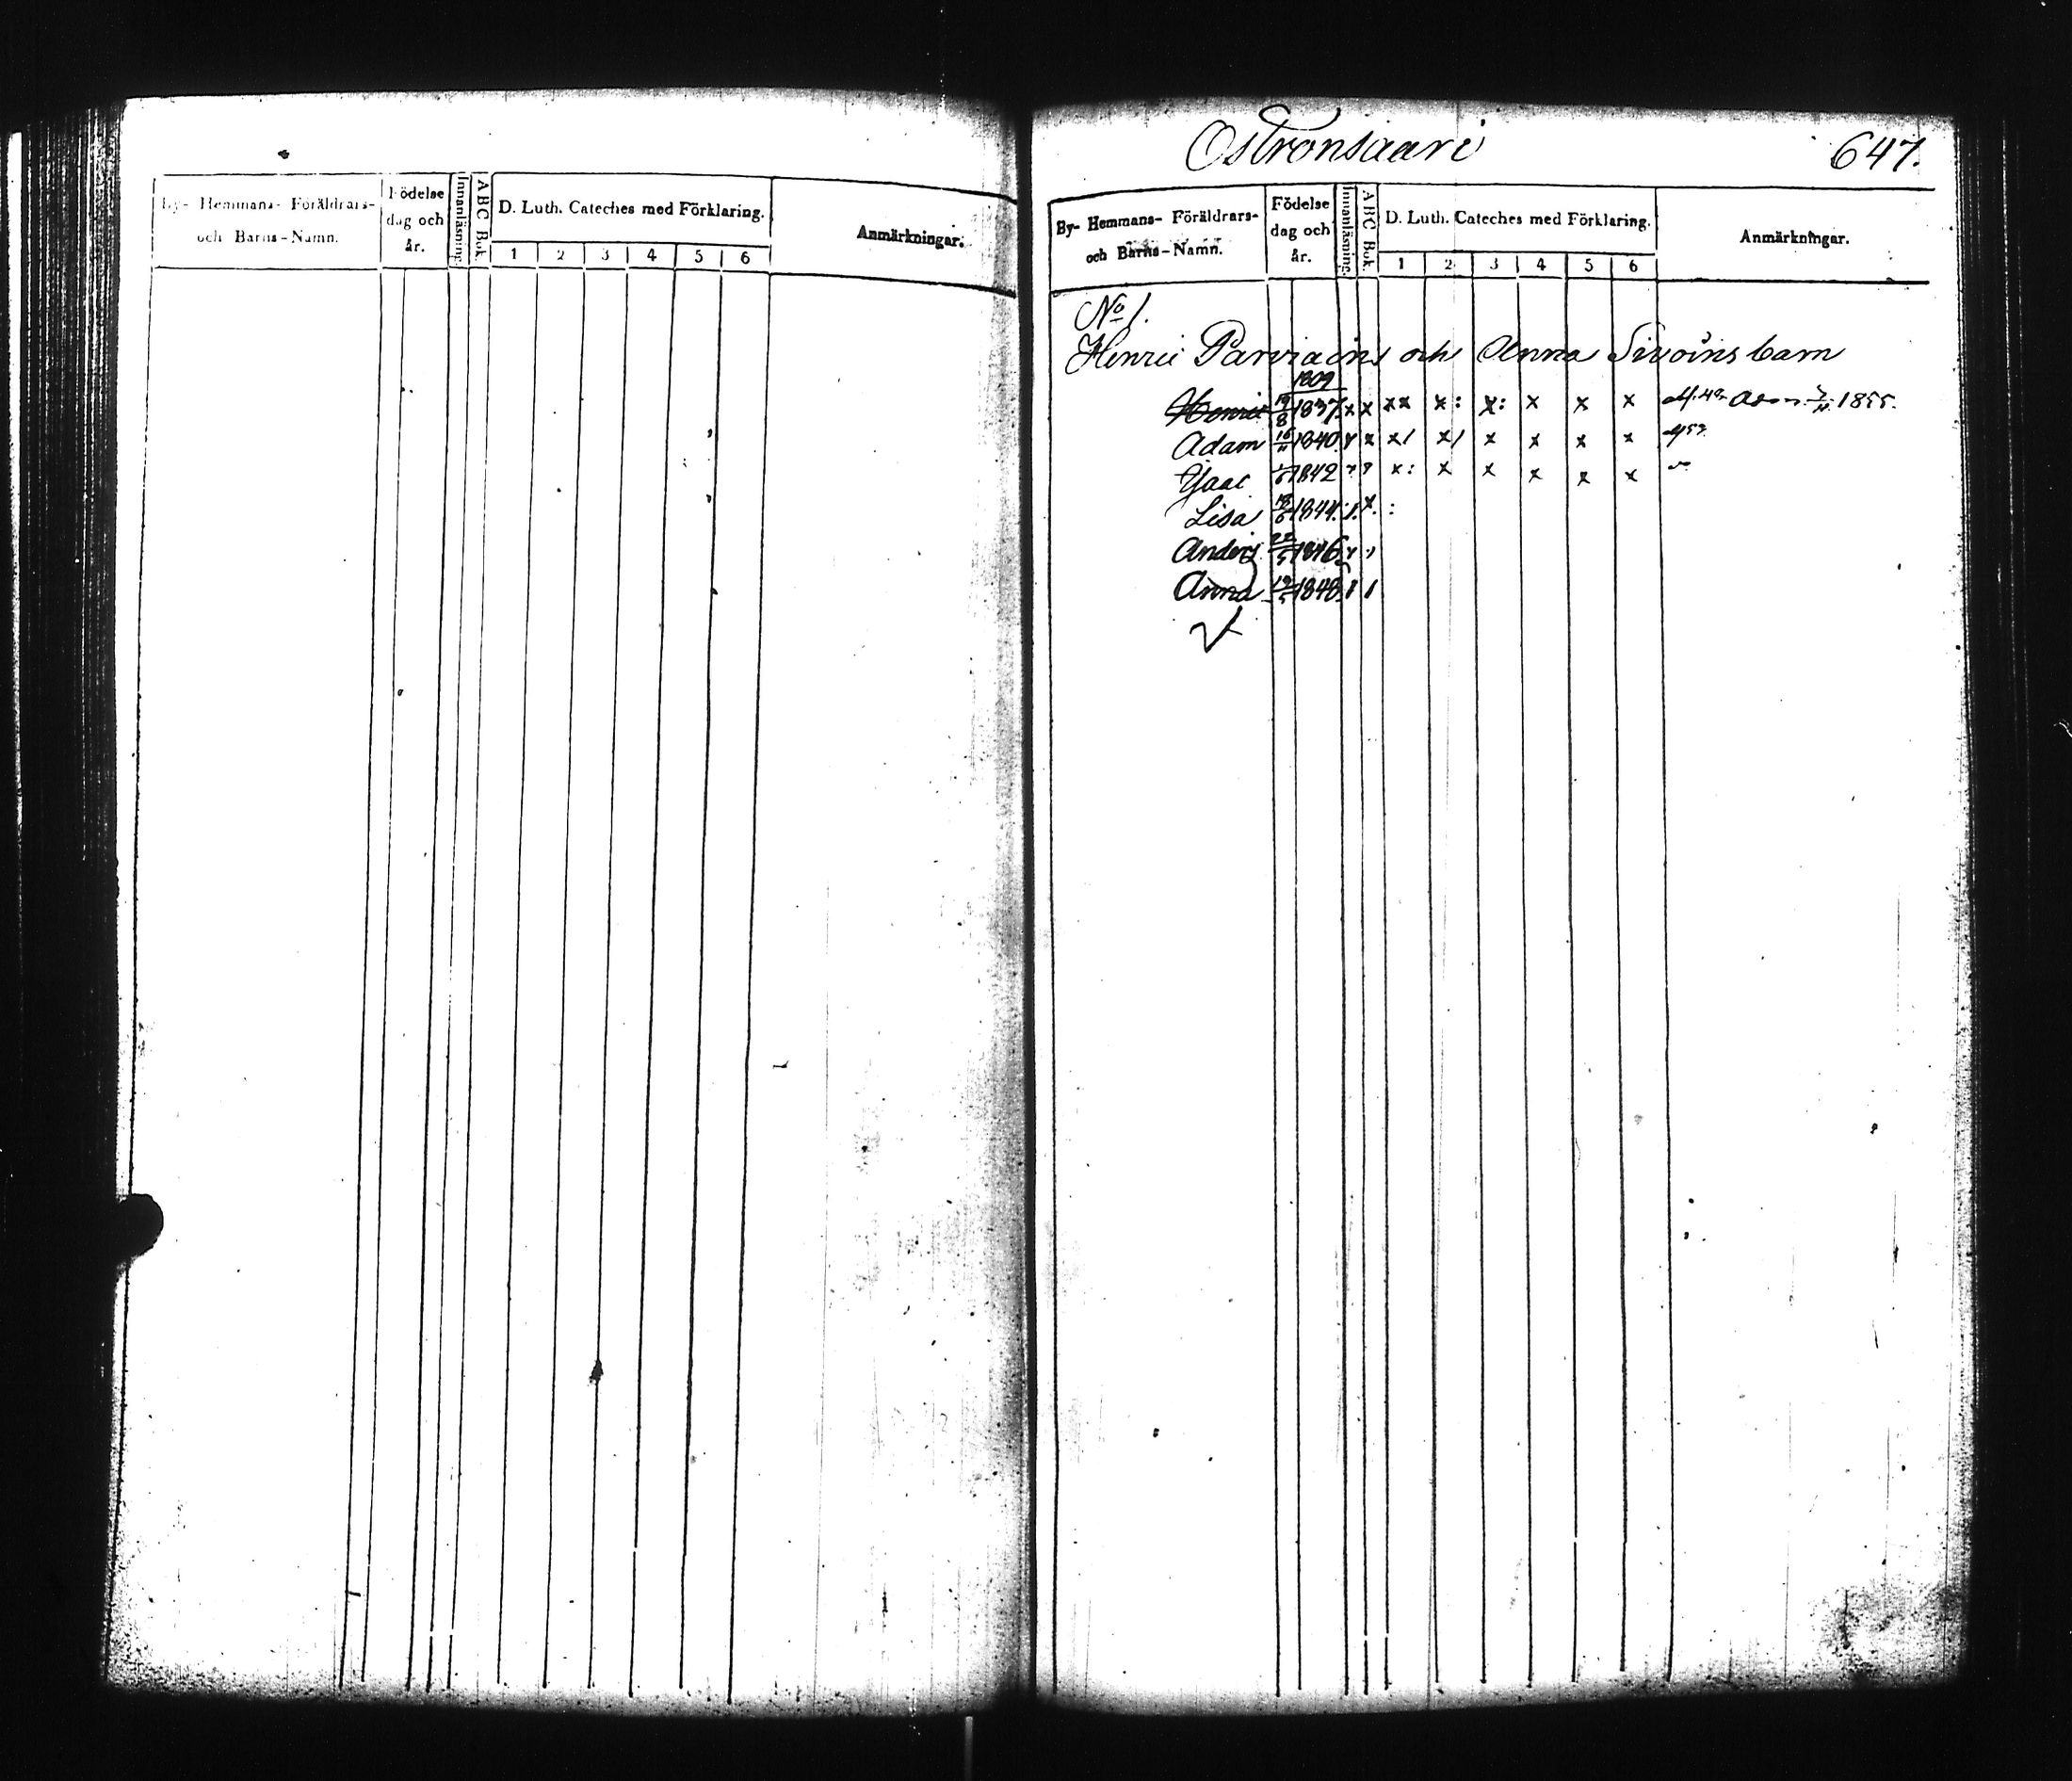 By- Hemmans- Föräldrars- och Barns-Namn. Födelse dag och år. Innanläsning. ABC Bok. D. Luth. Cateches med Förklaring. Anmärkningar.
1 2 3 4 5 6
Ostronsaari 647.
By- Hemmans- Föräldrars- och Barns-Namn. Födelse dag och år. Innanläsning. ABC Bok. D. Luth. Cateches med Förklaring. Anmärkningar.
1 2 3 4 5 6
No 1.
Henric Parviains och Anna Sivoins barn
1809
Henric 19/8 1837. x x xx x: x: x x x 1855.
Adam 1840. x x x/ x/ x x x x
Isaac 1842 x: x x x x x
Lisa 1844.
Anders 22/5 1846
Anna 1848.